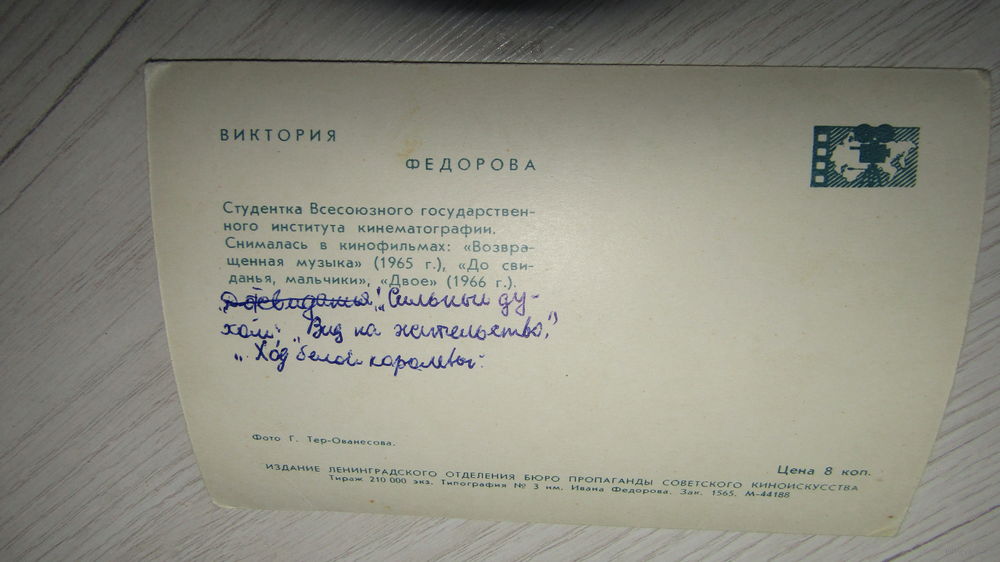 ВИКТОРИЯ
ФЕДОРОВА
Студентка Всесоюзного государствен-
ного института кинематографии.
Снималась в кинофильмах: «Возвра-
щенная музыка» (1965 г.), «До сви-
данья, мальчики», «Двое» (1966 г.).
„Сильный ду-
хом" „Вид на жительство",
„Ход белой королевы"
Фото Г. Тер-Ованесова.
Цена 8 коп.
ИЗДАНИЕ ЛЕНИНГРАДСКОГО ОТДЕЛЕНИЯ БЮРО ПРОПАГАНДЫ СОВЕТСКОГО КИНОИСКУССТВА
Тираж 210 000 экз. Типография № 3 им. Ивана Федорова. Зак. 1565. М-44188